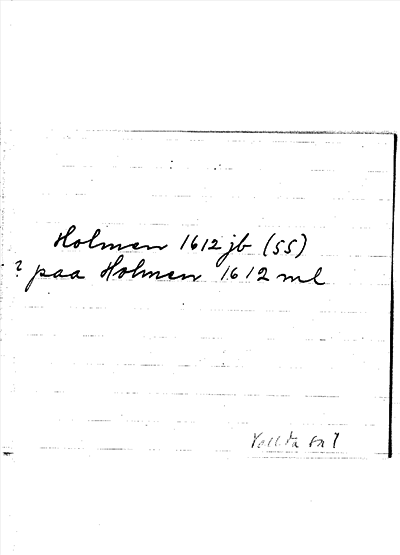 Holmen 1612 jb (SS)
? paa Holmen 1612 ml
Vallda sn